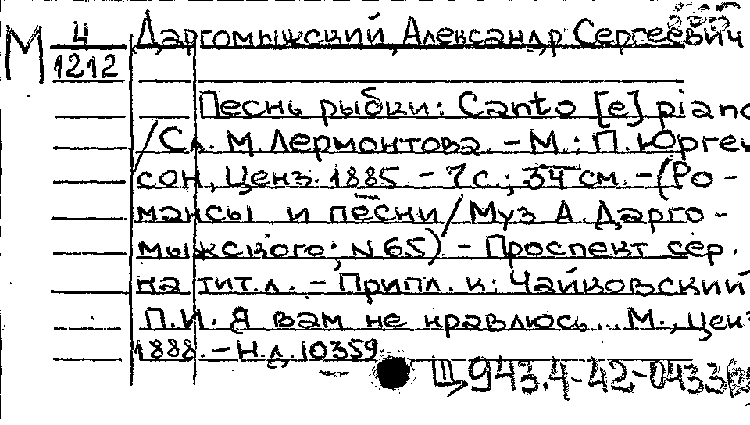 М 4/1212
Даргомыжский, Александр Сергеевич
Песнь рыбки: Canto [e] piano
/Сл. М. Лермонтова. - М.: П. Юрген
сон, Ценз. 1885. - 7 с.; 34 см. - (Ро-
мансы и песни/Муз А. Дарго-
мыжского; N 65) - Проспект сер.
на тит. л. - Припл. к: Чайковский
П.И. Я вам не нравлюсь... М., Ценз
1888. - Н.д. 10359
Щ943.4-42-0433